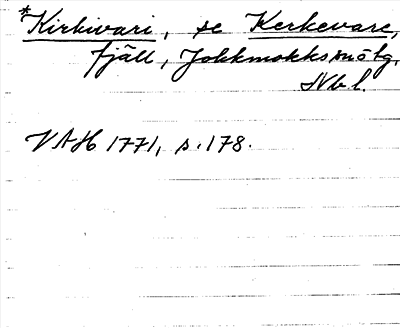 *Kirkivari, se Kerkevare,
fjäll, Jokkmokks snötg,
Nbl.
VAH 1771, s. 178.